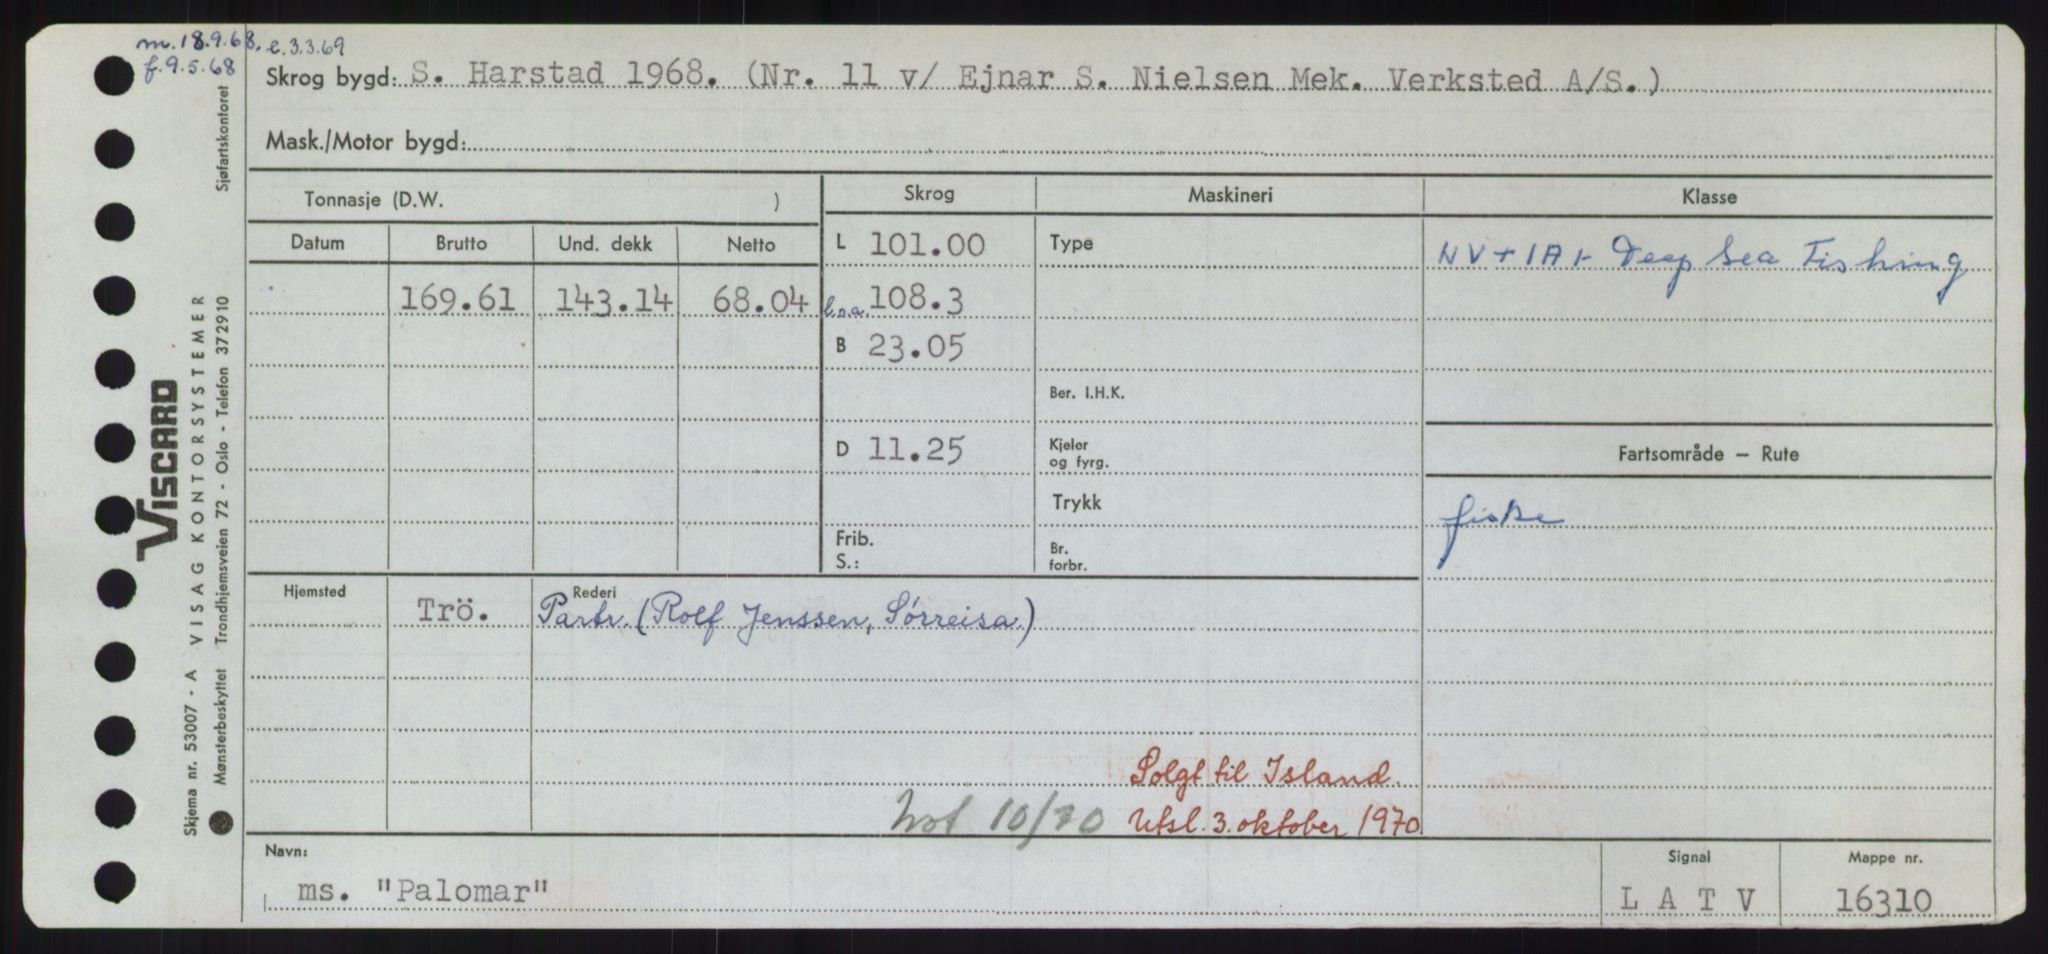 m. 18.9.68. e. 3.3.69
f. 9.5.68
Skrog bygd: S. Harstad 1968. (Nr. 11 v/ Ejnar S. Nielsen Mek. Verksted A/S.)
Mask./Motor bygd:
Tonnasje (D.W. )
Skrog
Maskineri
Klasse
Datum Brutto Und. dekk Netto
L 101.00
Type
NV + 1A1 - Deep Sea Fishing
169.61 143.14 68.04
l.o.a. 108.3
B 23.05
Ber. I.H.K.
D 11.25
Kjeler
og fyrg.
Fartsområde – Rute
Trykk
fiske
Frib.
S.:
Br.
forbr.
Hjemsted Rederi
Trö. Partr. (Rolf Jenssen, Sörreisa)
Solgt til Island.
Not 10/70 Utsl. 3. oktober 1970
Navn: Signal Mappe nr.
ms. "Palomar" L A T V 16310
VISCARD
Skjema nr. 53007 - A VISAG KONTORSYSTEMER
Mønsterbeskyttet Trondhjemsveien 72 - Oslo - Telefon 372910 Sjøfartskontoret